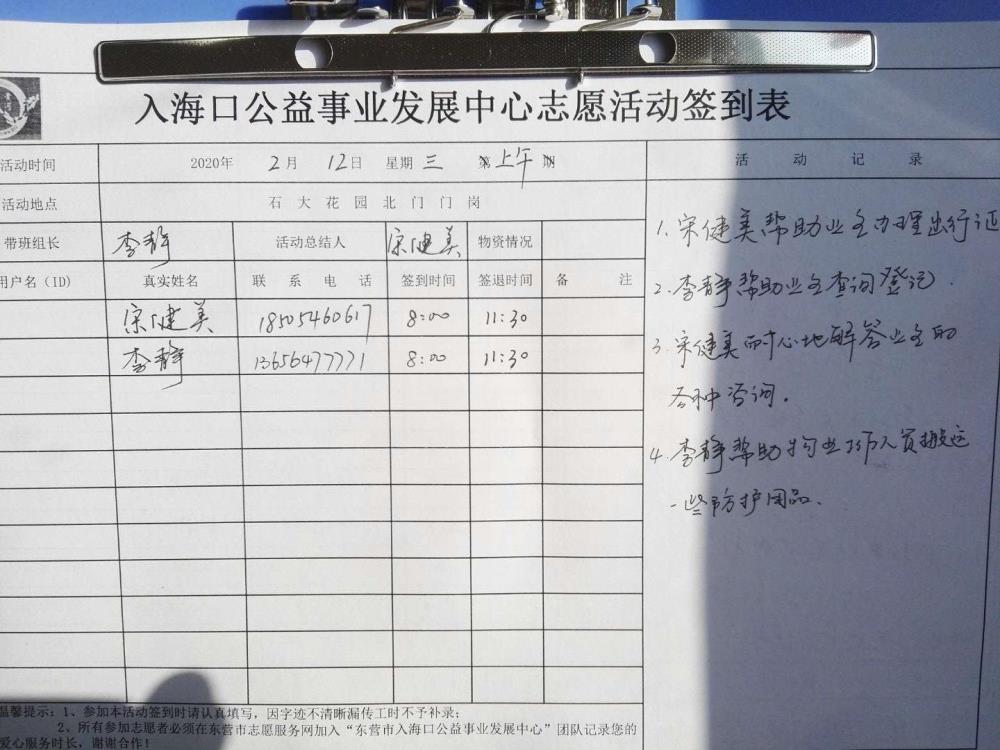 入海口公益事业发展中心志愿活动签到表
活动时间 2020年 2月 12日 星期 三 上午
活动地点 石大花园北门门岗
带班组长 李静 活动总结人 宋健美 物资情况
用户名（ID） 真实姓名 联系电话 签到时间 签退时间 备注
宋健美 18505460617 8:00 11:30
李静 13656477771 8:00 11:30
活动记录
1. 宋健美帮助业主办理出行证
2. 李静帮助业主查询登记.
3. 宋健美耐心地解答业主的
各种咨询.
4. 李静帮助物业工作人员搬运
一些防护用品.
温馨提示：1、参加本活动签到时请认真填写，因字迹不清晰漏传工时不予补录；
2、所有参加志愿者必须在东营市志愿服务网加入“东营市入海口公益事业发展中心”团队记录您的
爱心服务时长，谢谢合作！